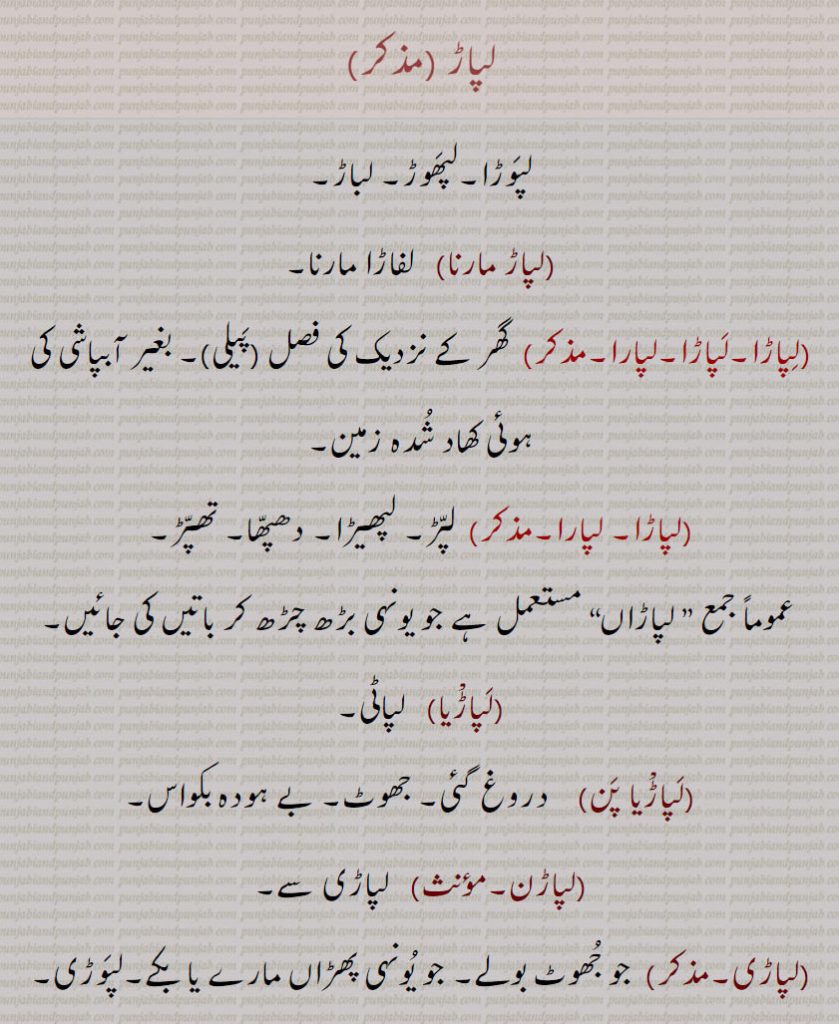 لپاڑ (مذکر)
لپَوڑا۔لپھَوڑ۔ لباڑ۔
(لپاڑ مارنا) لفاڑا مارنا۔
(لِپاڑا۔لَپاڑا۔لپارا۔مذکر) گھر کے نزدیک کی فصل (پَیلی)۔ بغیر آبپاشی کی
ہوئی کھاد شُدہ زمین۔
(لپاڑا۔ لپارا۔مذکر) لپّڑ۔ لپھیڑا۔ دھپھّا۔ تھپّڑ۔
عموماً جمع ”لپاڑاں“ مستعمل ہے جو یونہی بڑھ چڑھ کر باتیں کی جائیں۔
(لَپاڑْیا) لپاٹی۔
(لَپاڑْیا پَن) دروغ گئی۔ جھوٹ۔ بے ہودہ بکواس۔
(لپاڑن۔مؤنث) لپاڑی سے۔
(لپاڑی۔مذکر) جو جُھوٹ بولے۔ جو یُونہی پھڑاں مارے یا بکے۔لپَوڑی۔
punjabiandpunjab.com